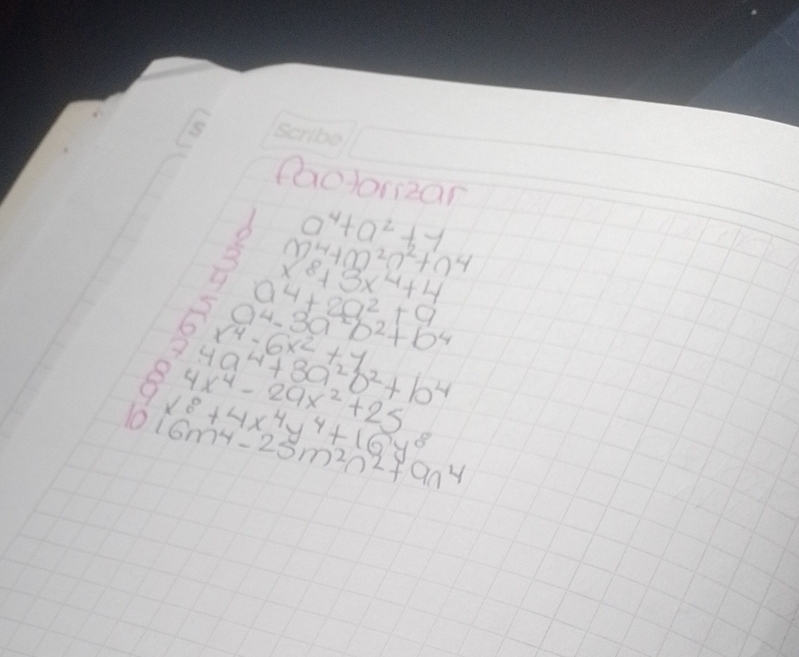 Scribe
Factorizar
1 a⁴+a²+1
2 m⁴+m²n²+n⁴
3 x⁸+3x⁴+4
4 a⁴+2a²+9
5 a⁴-3a²b²+b⁴
6 x⁴-6x²+1
7 4a⁴+3a²b²+b⁴
8 4x⁴-29x²+25
9 x⁸+4x⁴y⁴+16y⁸
10 16m⁴-25m²n²+9n⁴